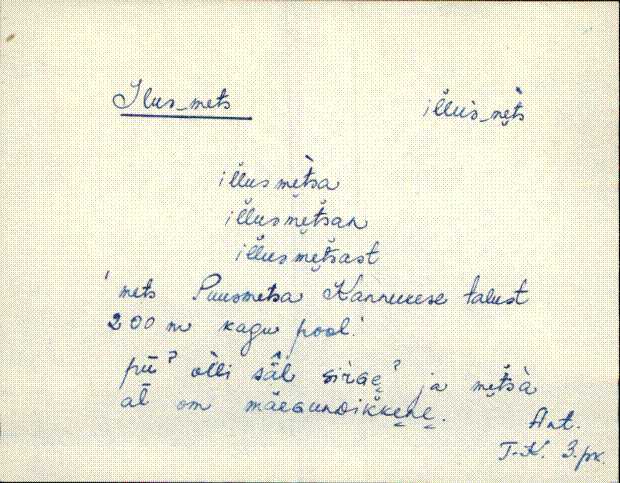 Ilus-mets illus-mets
illusmetsa
illusmetsan
illusmetsast
'mets Puusmetsa Kannukese talust
200 m kagu pool.'
pū? olli säl sirge? ja metsa
al om mäeaundikkene.
Ant.
T-K. 3.pk.